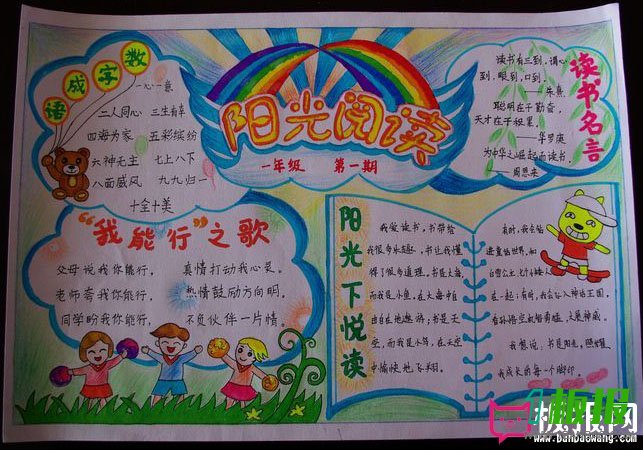 阳光阅读
一年级 第一期
数字成语
一心一意
二人同心 三生有幸
四海为家 五彩缤纷
六神无主 七上八下
八面威风 九九归一
十全十美
读书名言
读书有三到，谓心
到，眼到，口到。
——朱熹
聪明在于勤奋，
天才在于积累。
——华罗庚
为中华之崛起而读书。
——周恩来
“我能行”之歌
父母说我你能行， 真情打动我心菜。
老师夸我你能行， 热情鼓励方向明。
同学盼我你能行， 不负伙伴一片情。
阳光下悦读
我爱读书，书带给
我很多乐趣，书让我懂
得了很多道理。书是大海
而我是小鱼，在大海中自
由自在地遨游；书是天
空，而我是小鸟，在天空
中愉快地飞翔。
有时，我会钻
进童话世界，和
白雪公主、七个小矮人
在一起；有时，我会闯入神话王国，
看孙悟空机智勇猛，大展神威。
我想说，书是阳光，照耀
我成长的每一个脚印。
板报网
www.banbaowang.com